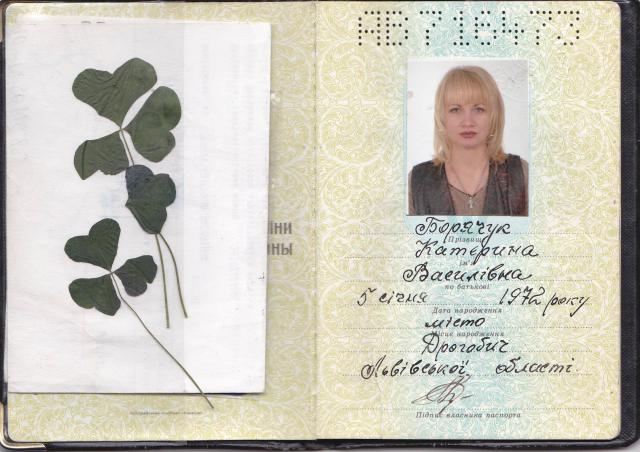 АВ718473
їни
ины
Борячук
Прізвище
Катерина
Ім'я
Василівна
по батькові
5 січня 1972 року
Дата народження
місто
Місце народження
Дрогобич
Львівської області
Підпис власника паспорта